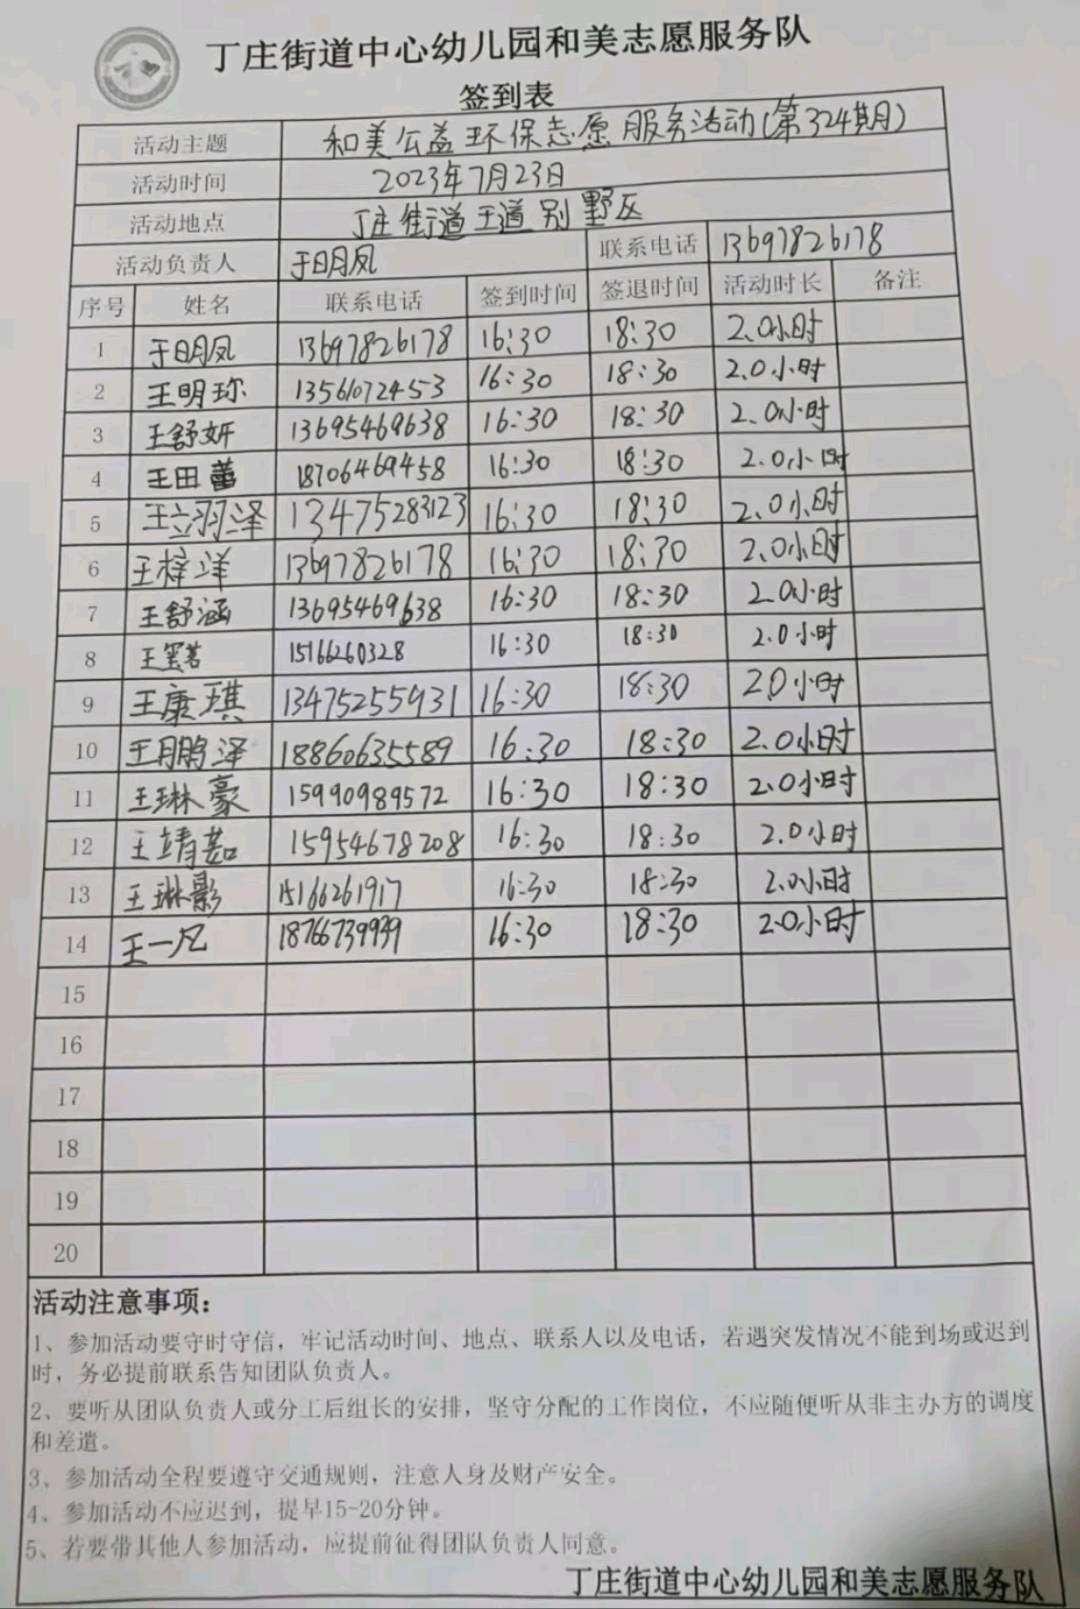 丁庄街道中心幼儿园和美志愿服务队
签到表
活动主题 和美公益环保志愿服务活动(第324期)
活动时间 2023年7月23日
活动地点 丁庄街道王道别墅区
活动负责人 于明凤 联系电话 13697826178
序号 姓名 联系电话 签到时间 签退时间 活动时长 备注
1 于明凤 13697826178 16:30 18:30 2.0小时
2 王明珎 13561072453 16:30 18:30 2.0小时
3 王舒妍 13695469638 16:30 18:30 2.0小时
4 王田蕾 18706469458 16:30 18:30 2.0小时
5 王立羽泽 13475283123 16:30 18:30 2.0小时
6 王梓洋 13697826178 16:30 18:30 2.0小时
7 王舒涵 13695469638 16:30 18:30 2.0小时
8 王 15166260328 16:30 18:30 2.0小时
9 王康琪 13475255931 16:30 18:30 2.0小时
10 王鹏泽 18860635589 16:30 18:30 2.0小时
11 王琳豪 15990989572 16:30 18:30 2.0小时
12 王靖茹 15954678208 16:30 18:30 2.0小时
13 王琳影 15166261917 16:30 18:30 2.0小时
14 王一凡 18766739939 16:30 18:30 2.0小时
15
16
17
18
19
20
活动注意事项：
1、参加活动要守时守信，牢记活动时间、地点、联系人以及电话，若遇突发情况不能到场或迟到
时，务必提前联系告知团队负责人。
2、要听从团队负责人或分工后组长的安排，坚守分配的工作岗位，不应随便听从非主办方的调度
和差遣。
3、参加活动全程要遵守交通规则，注意人身及财产安全。
4、参加活动不应迟到，提早15-20分钟。
5、若要带其他人参加活动，应提前征得团队负责人同意。
丁庄街道中心幼儿园和美志愿服务队